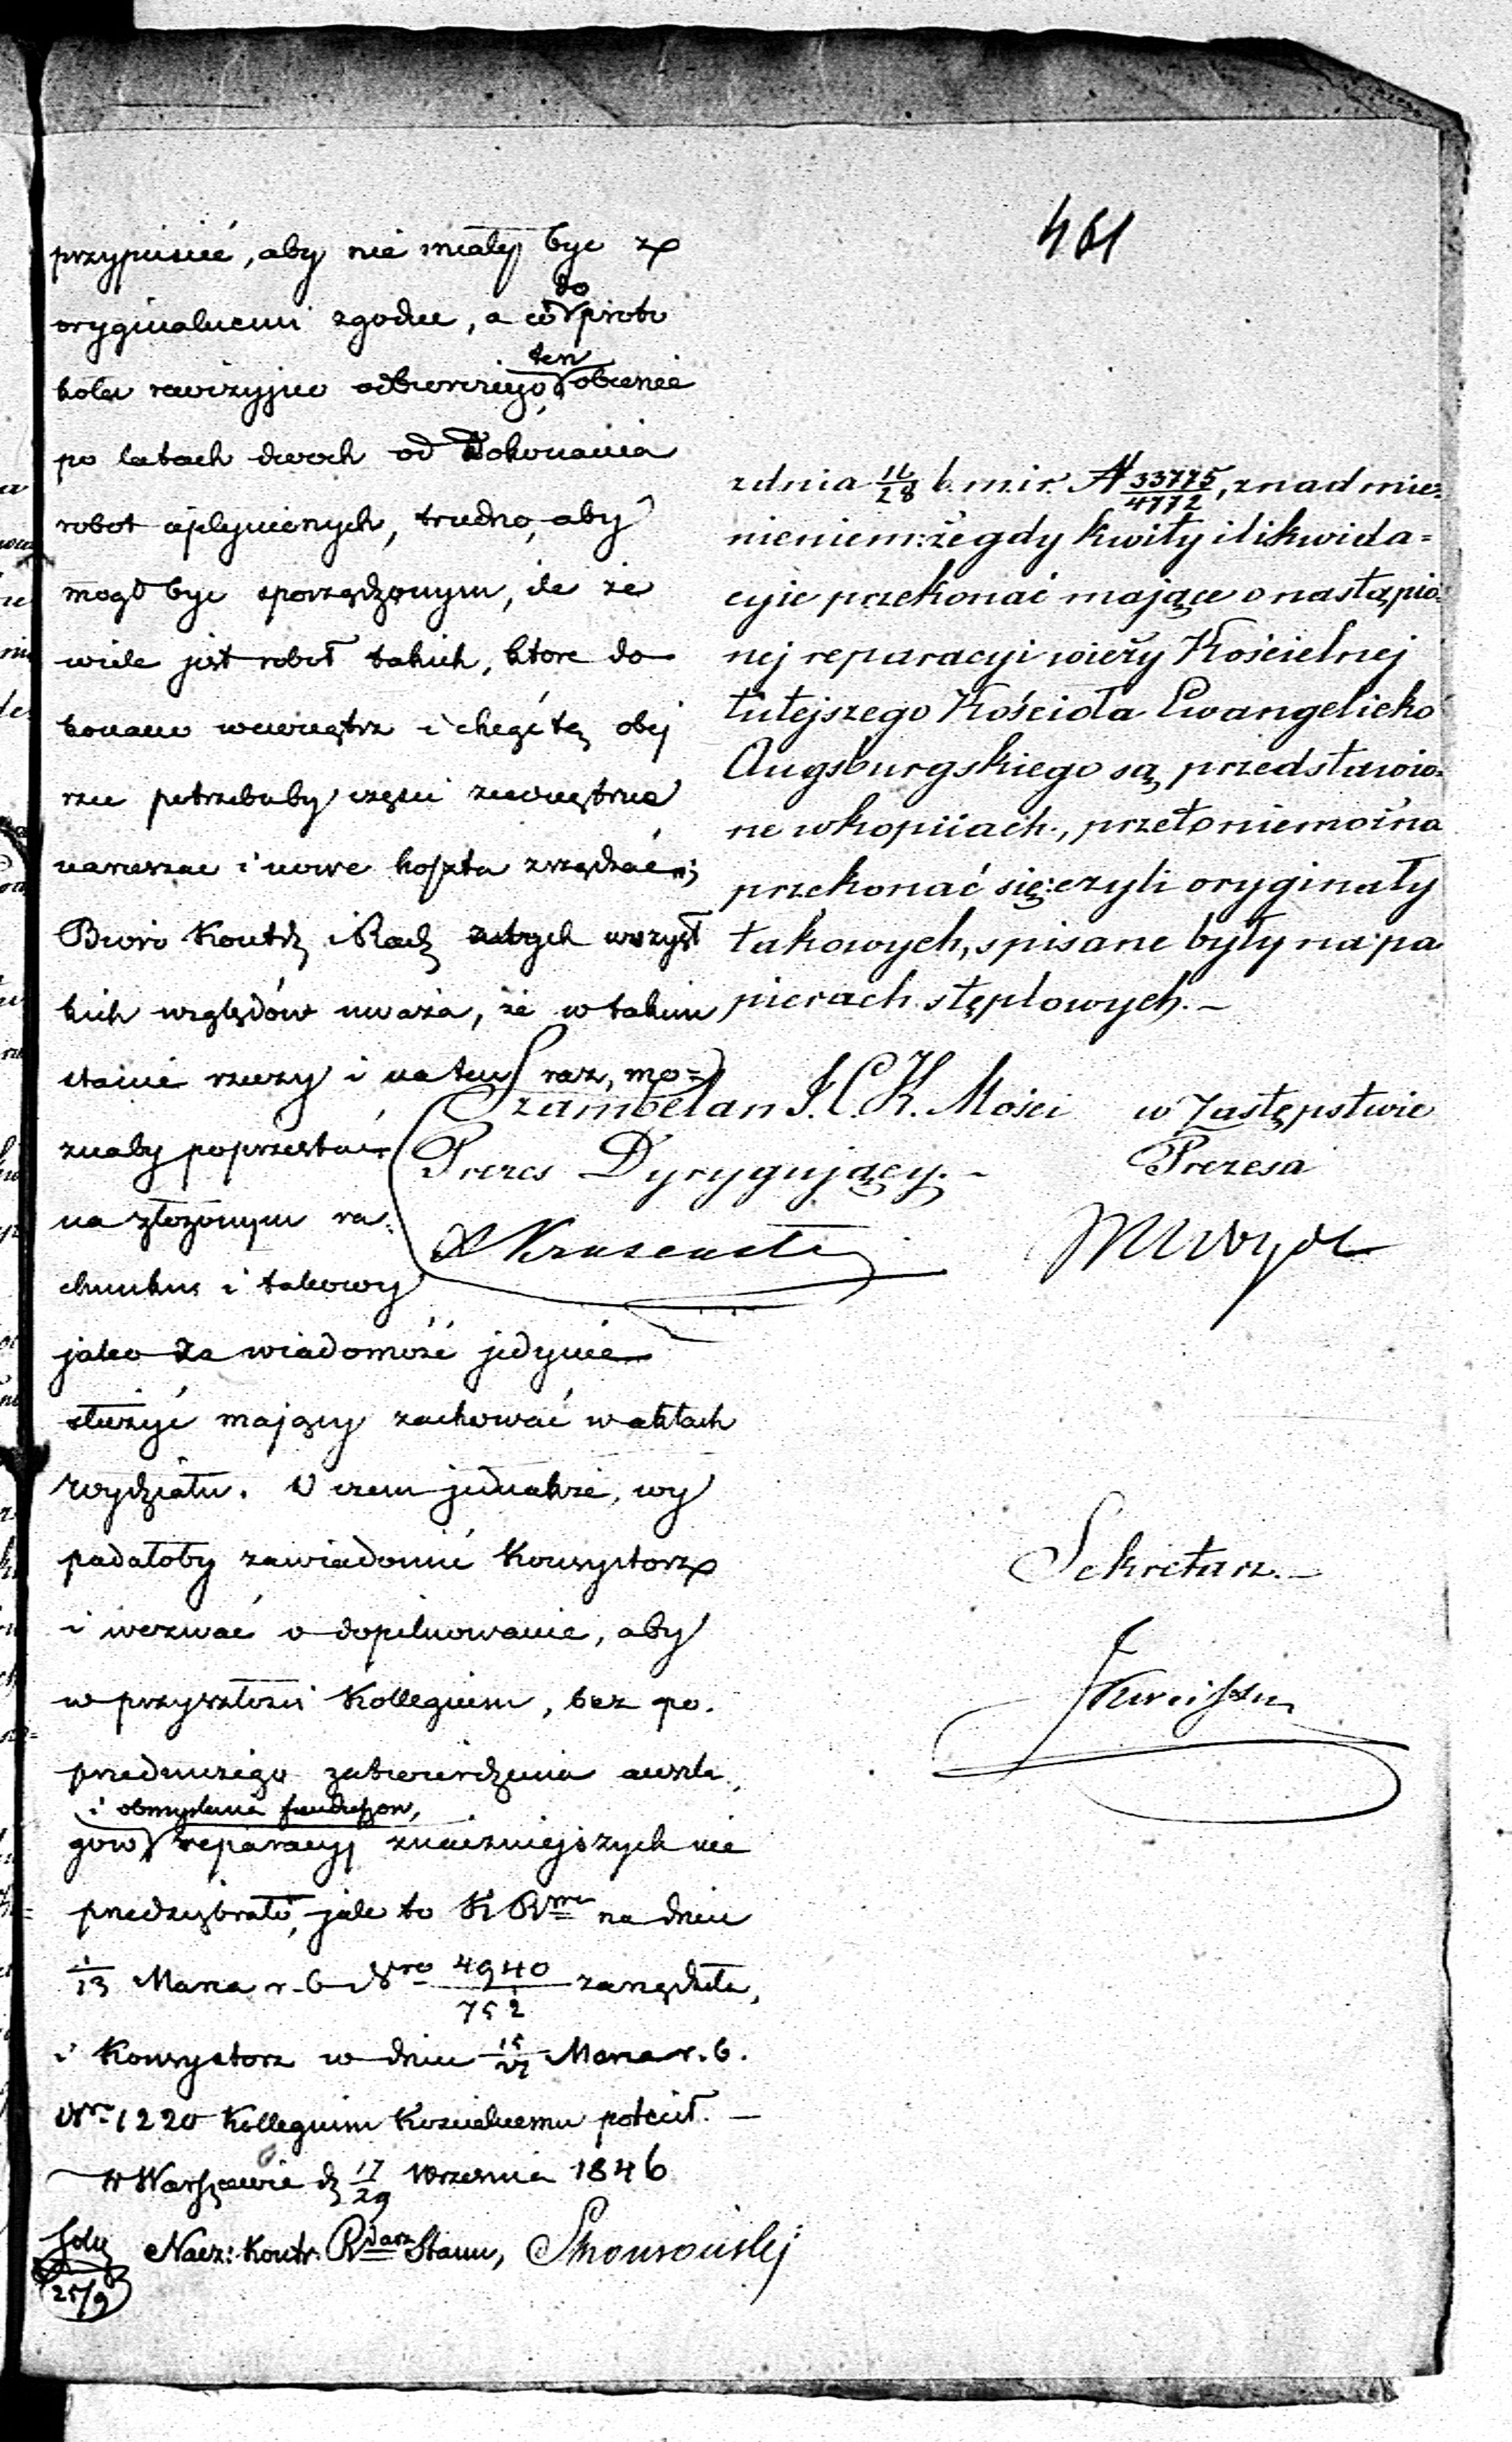 461
przypuścić, aby nie miały być z
oryginalnemi zgodne, a co do proto
kołu rewizyjno odbiorczego, ten obecnie
po latach dwóch od dokonania
robot upłynionych, trudno, aby
mógł być sporządzonym, ile że
wiele jest robót takich, które do
konano wewnątrz i chcąc te obej
rzeć potrzebaby części zewnętrzne
naruszać i nowe koszta zrządzać;
Biuro Kontr. i Rach. z tych wszyst
kich względów uważa, że w takim
stanie rzeczy i na ten raz, mo=
żnaby poprzestać
na złożonym ra
chunku i takowy
jako za wiadomość jedynie
służyć mający zachować w aktach
Wydziału. O czem jednakże, wy
padałoby zawiadomić Konsystorz
i wezwać o dopilnowanie, aby
w przyszłości Kollegium, bez po.
przedniczego zatwierdzenia anszla
gów i obmyślenia funduszów, reparacyj znaczniejszych nie
przedsiębrało, jak to K R na dniu
1/13 Marca r. b. Nro 4940/752 zarządziła,
i Konsystorz w dniu 15/27 Marca r. b.
Nro 1220 Kollegium Kościelnemu polecił. —
w Warszawie d. 17/29 Września 1846
Nacz: Kontr. Stanu,
25/9
z dnia 16/28 b. m. i r. N 33775/4772, z nadmie=
nieniem: że gdy kwity i likwida=
cyie przekonać mające o nastąpio=
nej reparacyi wieży Kościelnej
tutejszego Kościoła Ewangelicko
Augsburgskiego są przedstawio=
ne w kopiiach, przeto niemożna
przekonać się: czyli oryginały
takowych, spisane były na pa
pierach stęplowych. —
Szambelan J. C. K. Mości w Zastępstwie
Prezes Dyrygujący. — Prezesa
Sekretarz. —